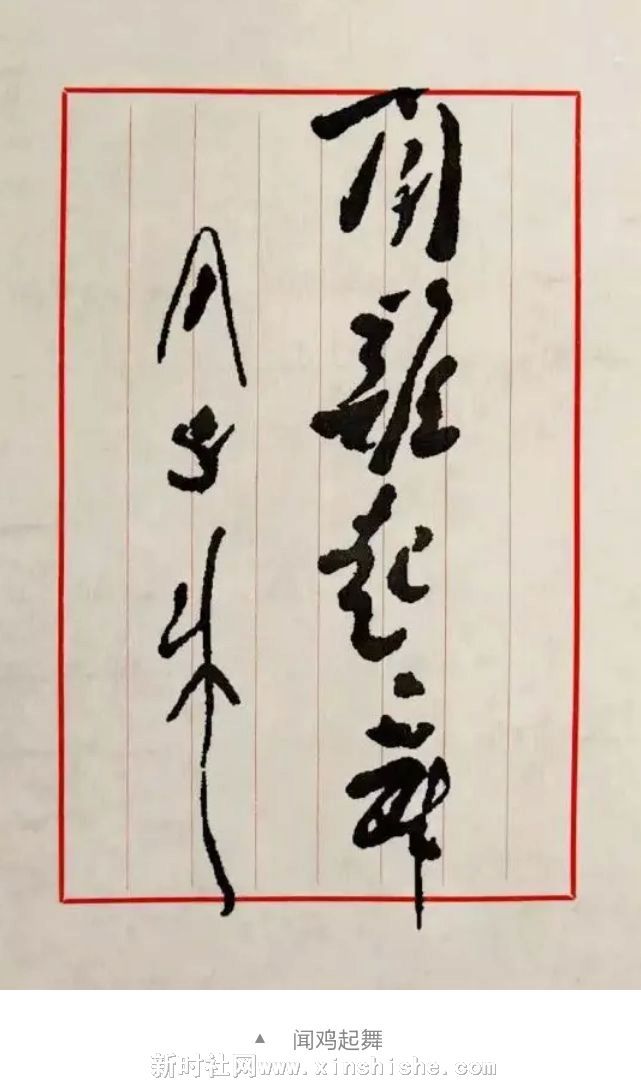 聞雞起舞
▲ 闻鸡起舞
新时社网www.xinshishe.com